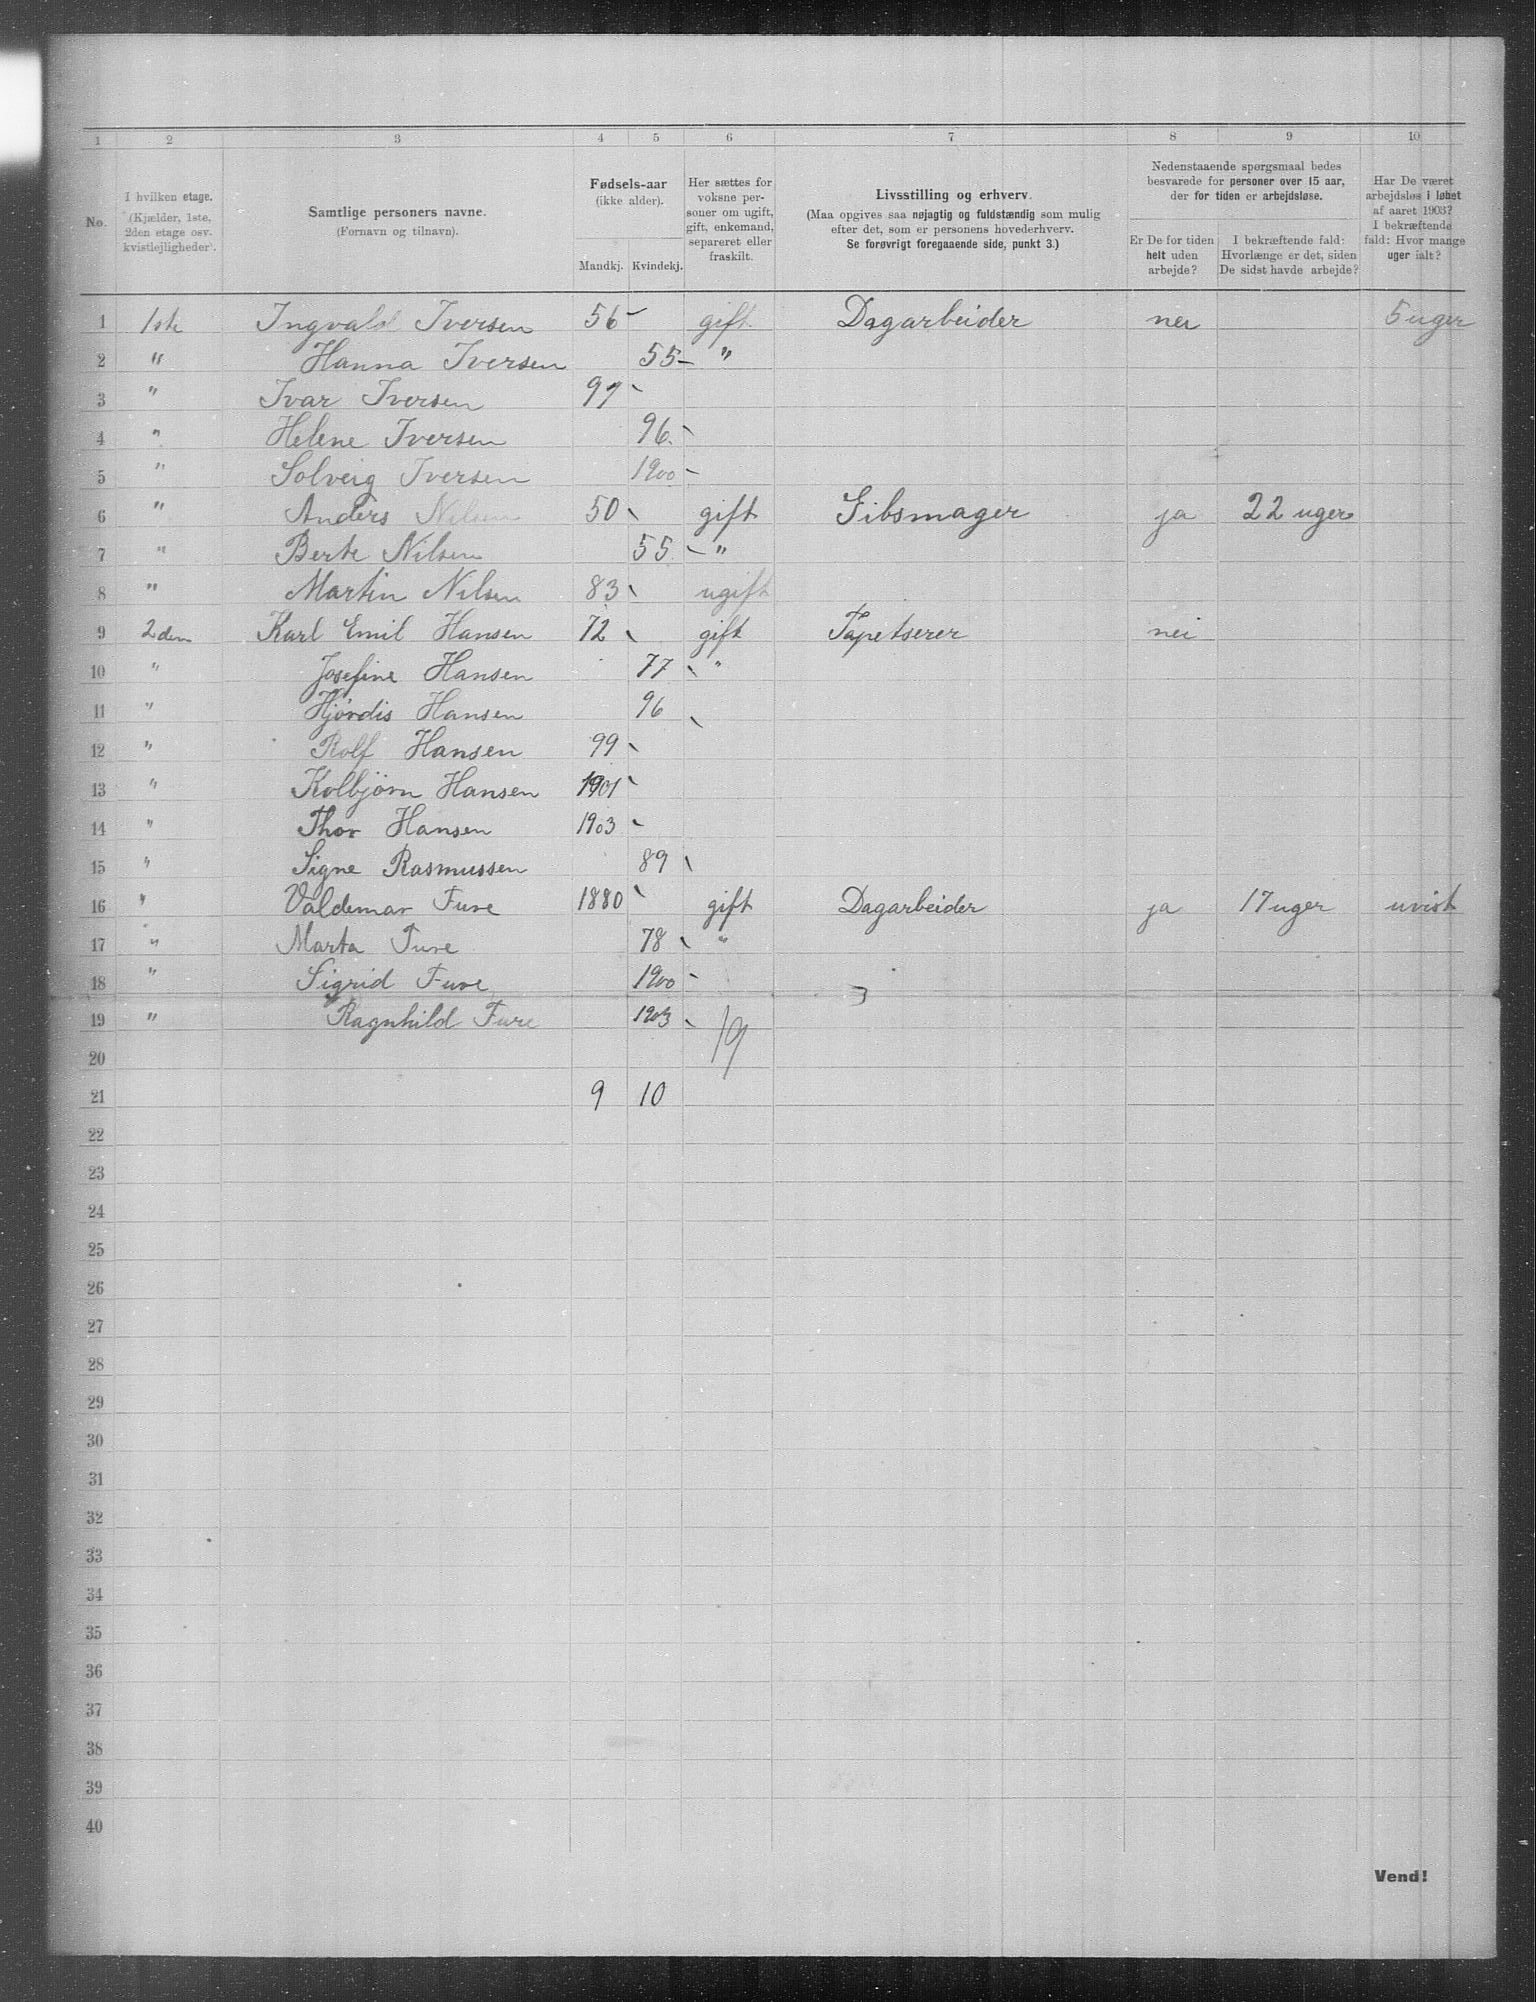 1 2 3 4 5 6 7 8 9 10
No.
I hvilken etage. (Kjælder, 1ste, 2den etage osv. kvistlejligheder).
Samtlige personers navne. (Fornavn og tilnavn).
Fødsels-aar (ikke alder).
Mandkj. Kvindekj.
Her sættes for voksne personer om ugift, gift, enkemand, separeret eller fraskilt.
Livsstilling og erhverv.
(Maa opgives saa nøjagtig og fuldstændig som mulig
efter det, som er personens hovederhverv.
Se forøvrigt foregaaende side, punkt 3.)
Nedenstaaende spørgsmaal bedes
besvarede for personer over 15 aar,
der for tiden er arbejdsløse.
Er De for tiden helt uden arbejde?
I bekræftende fald: Hvorlænge er det, siden De sidst havde arbejde?
Har De været arbejdsløs i løbet af aaret 1903? I bekræftende fald: Hvor mange uger ialt?
1 1ste Ingvald Iversen 56 gift Dagarbeider nei 5 uger
2 " Hanna Iversen 55 "
3 " Ivar Iversen 97
4 " Helene Iversen 96
5 " Solveig Iversen 1900
6 " Anders Nilsen 50 gift Gibsmager ja 22 uger
7 " Berte Nilsen 55 "
8 " Martin Nilsen 83 ugift
9 2den Karl Emil Hansen 72 gift Tapetserer nei
10 " Josefine Hansen 77 "
11 " Hjørdis Hansen 96
12 " Rolf Hansen 99
13 " Kolbjörn Hansen 1901
14 " Thor Hansen 1903
15 " Signe Rasmussen 89
16 " Valdemar Fure 1880 gift Dagarbeider ja 17 uger uvist
17 " Marta Fure 78 "
18 " Sigrid Fure 1900
19 " Ragnhild Fure 1903 19
20
21 9 10
22
23
24
25
26
27
28
29
30
31
32
33
34
35
36
37
38
39
40
Vend!